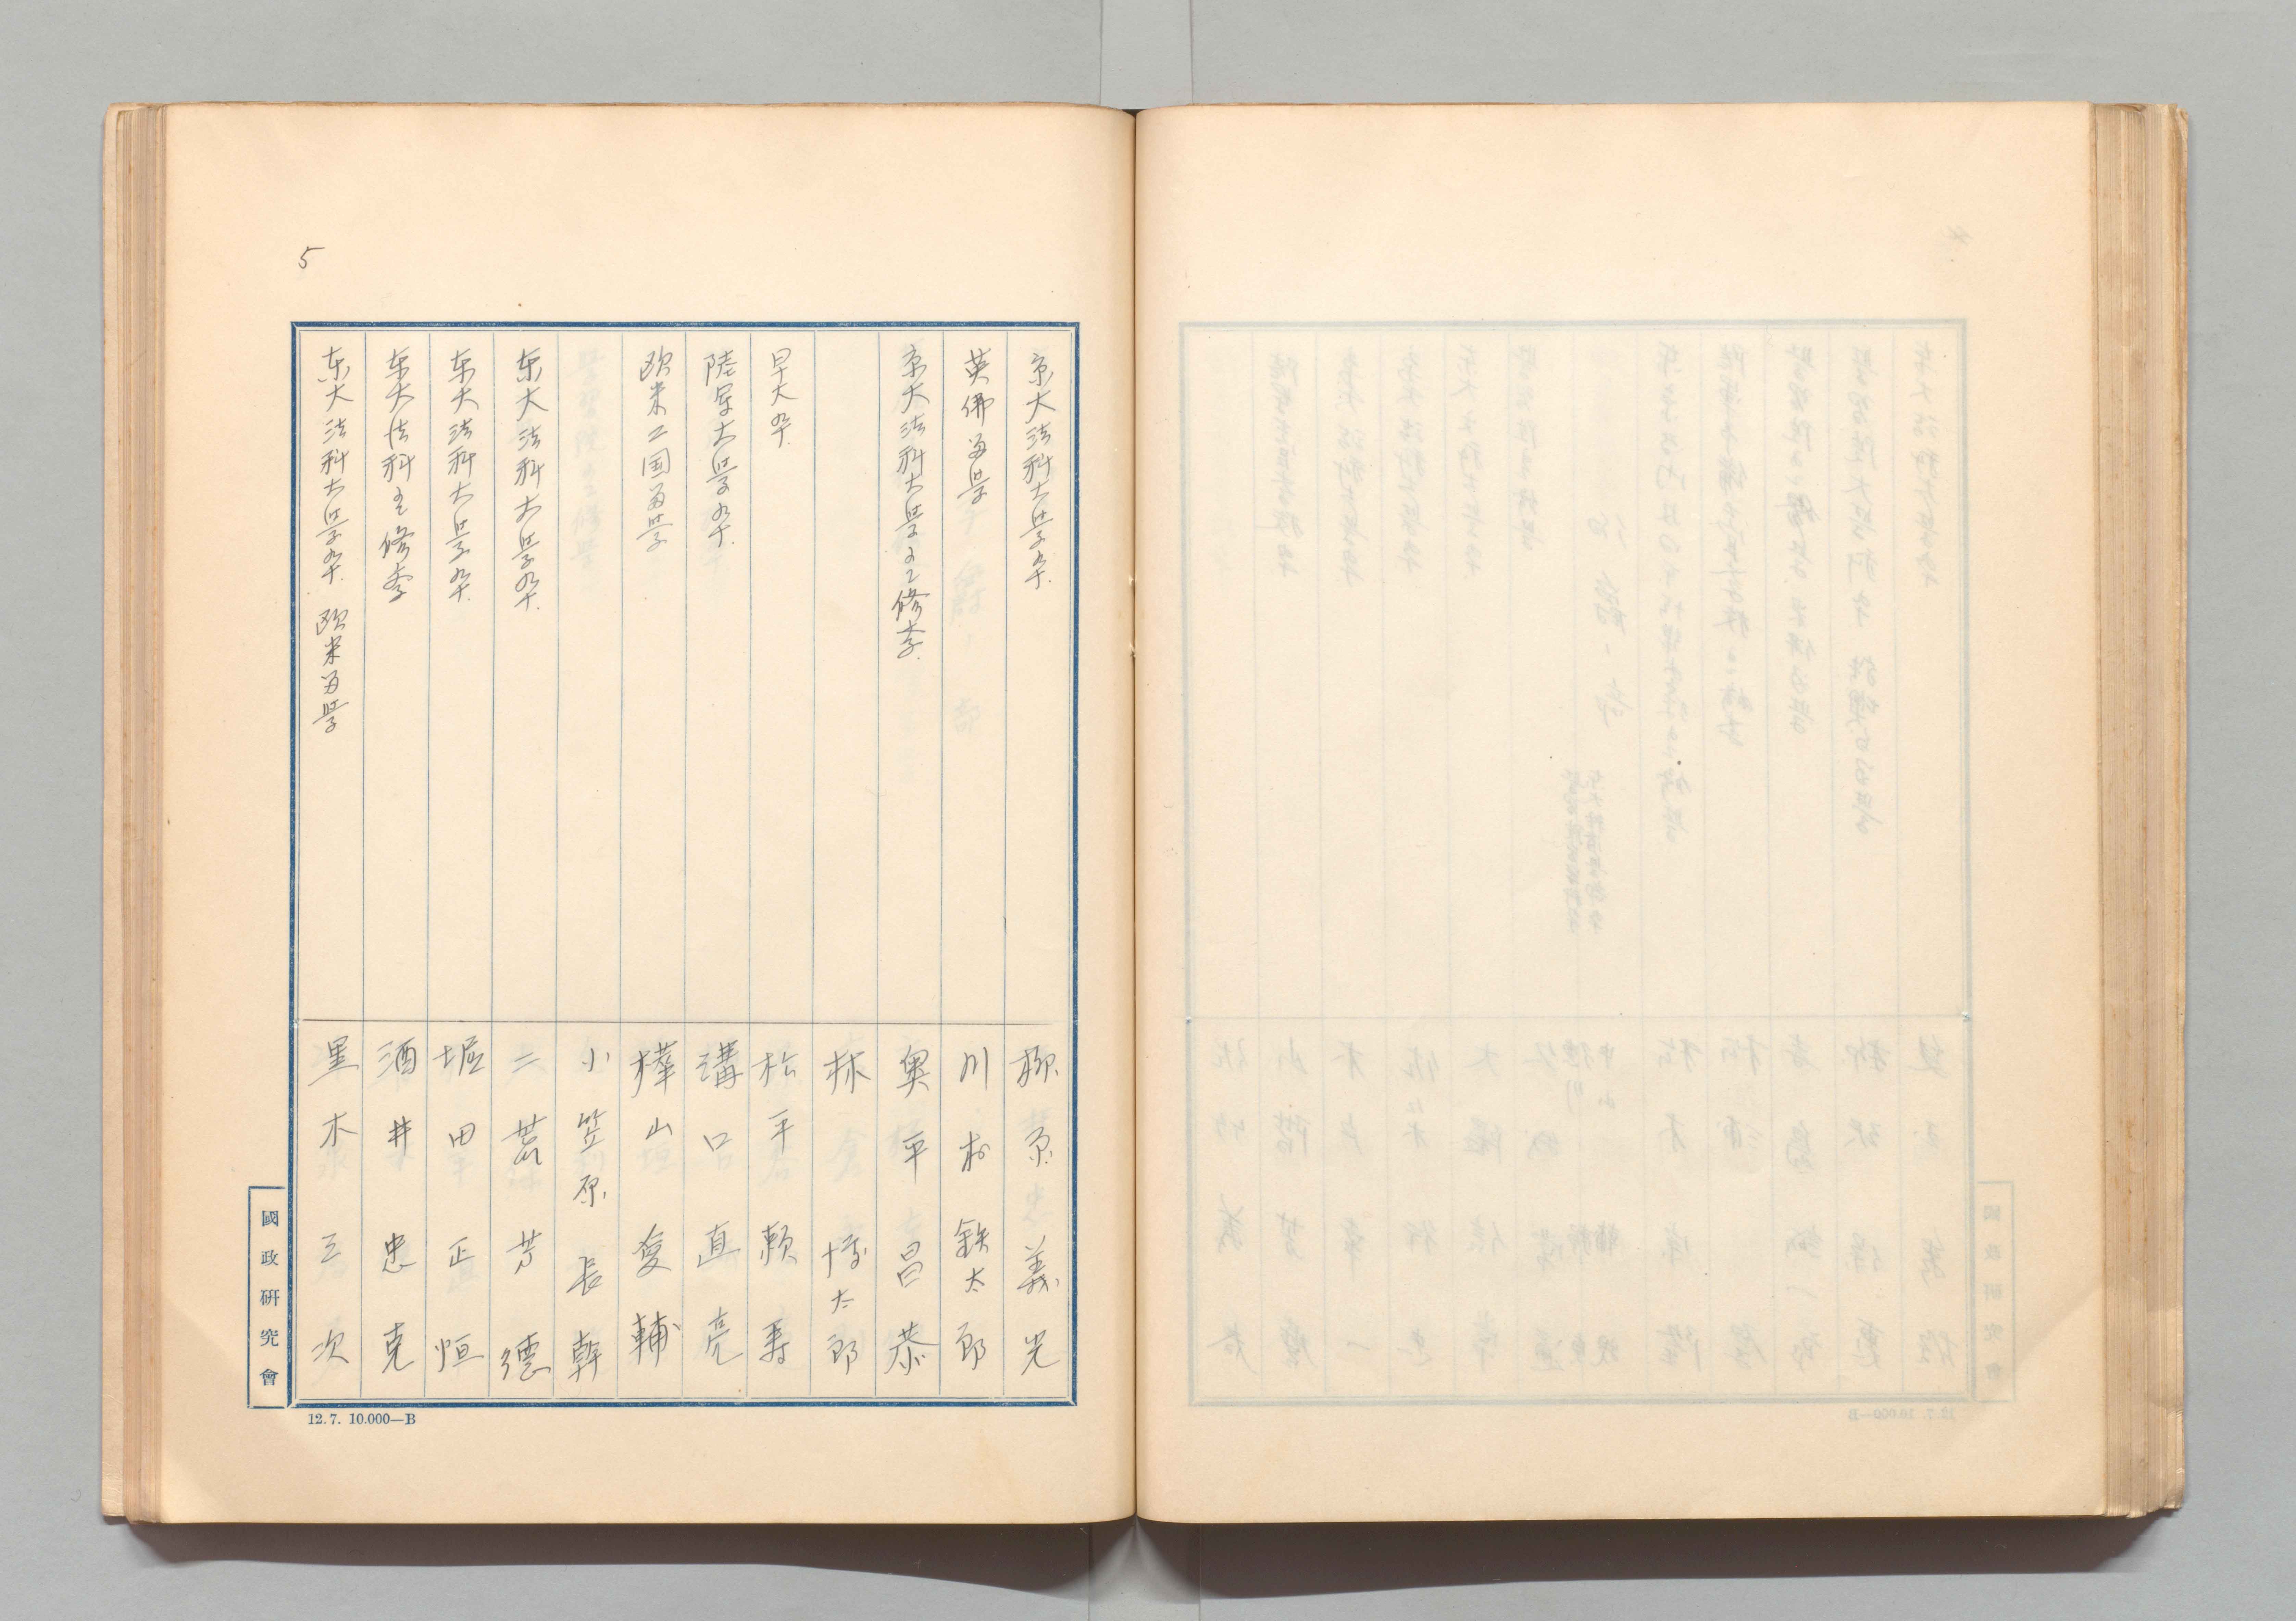 5
京大法科大学卒. 柳原義光
英佛留学 川村鉄太郎
京大法科大学ニ修学. 奥平昌恭
林博太郎
早大卒. 松平頼寿
陸軍大学卒. 溝口直亮
欧米二国留学 樺山愛輔
小笠原長幹
東大法科大学卒. 二荒芳德
東大法科大学卒. 堀田正恒
東大法科ニ修学 酒井忠克
東大法科大学卒. 欧米留学 黒木三次
國政研究會
12.7. 10.000—B